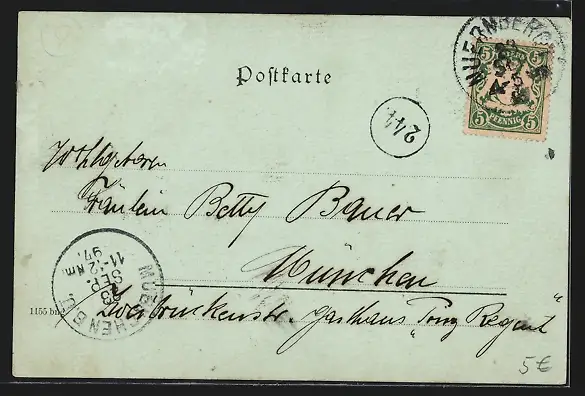 Postkarte
NUERNBERG
5 5
BAYERN
5 PFENNIG 5
244
Wohlgeboren
Fräulein Betty Bauer
München
Zweibrückenstr. Gasthaus
„Prinz Regent"
MUENCHEN B.P.
23 SEP.
11-12 Nm
97.
1155 b
5€